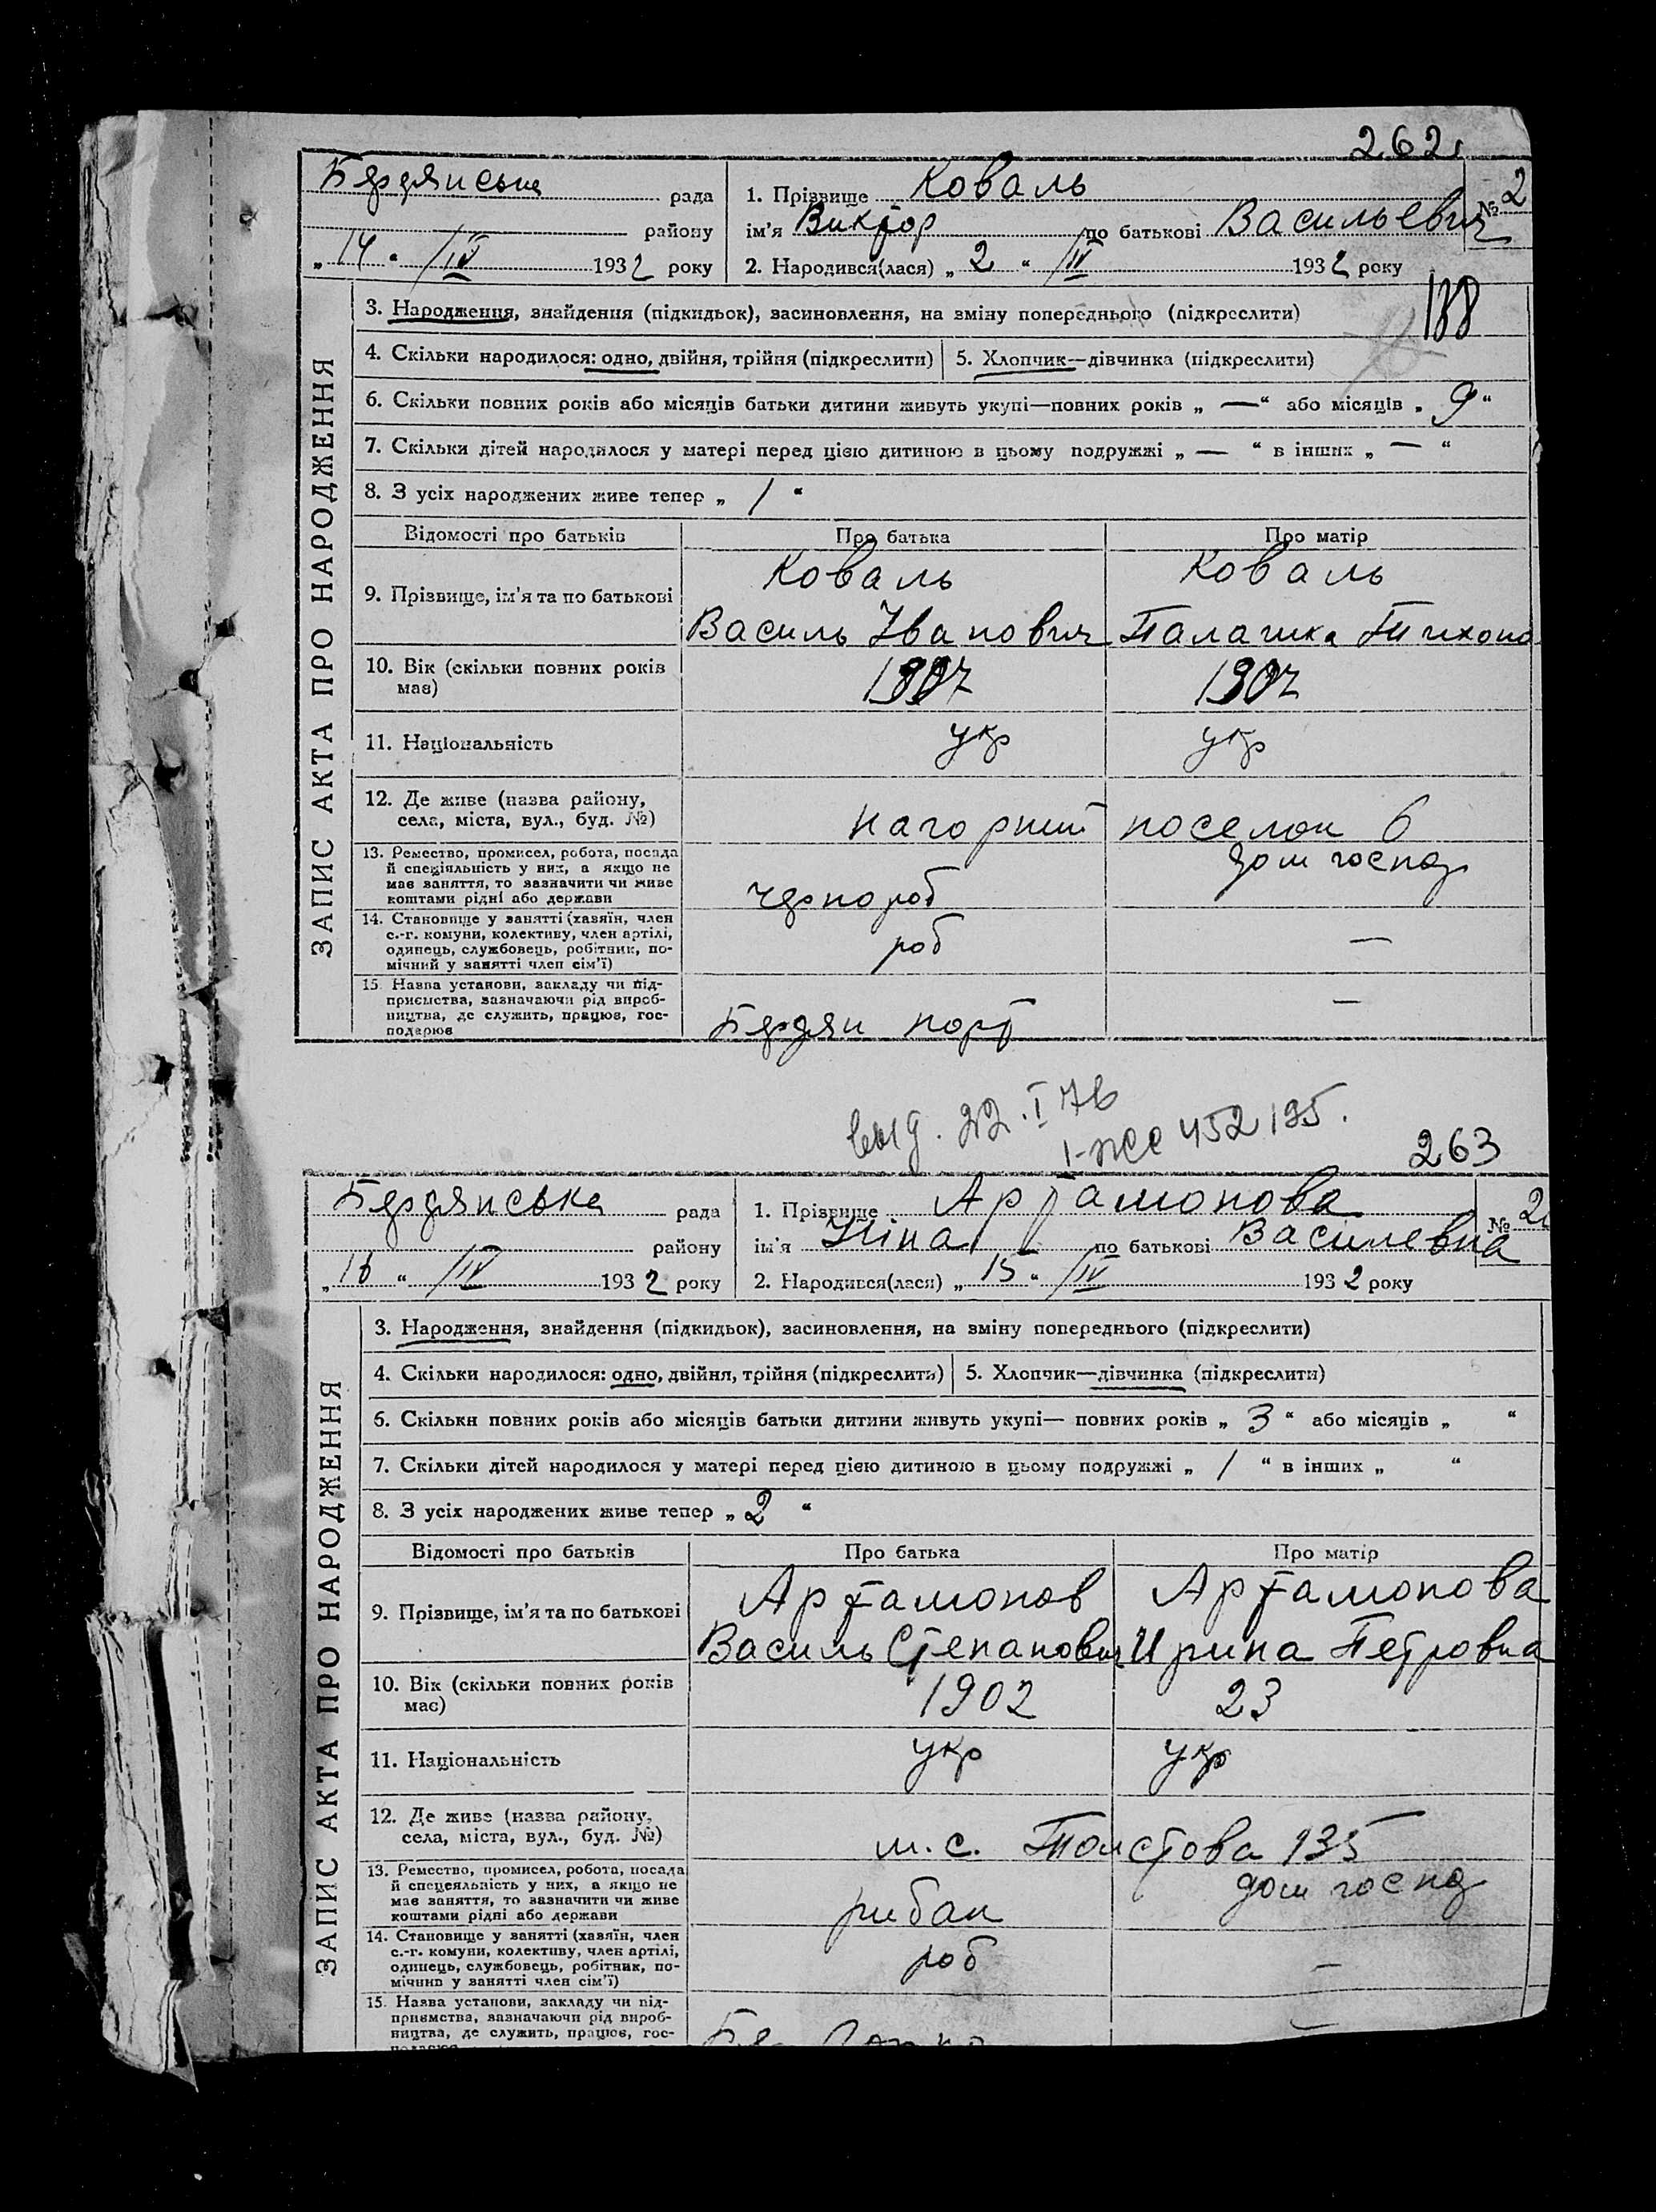 262
Бердянська рада
1. Прізвище Коваль
№ 2
району
ім'я Виктор по батькові Васильевич
„14“ /IV 1932 року
2. Народився(лася) „2“ /IV 1932 року
188
ЗАПИС АКТА ПРО НАРОДЖЕННЯ
3. Народження, знайдення (підкидьок), засиновлення, на зміну попереднього (підкреслити)
4. Скільки народилося: одно, двійня, трійня (підкреслити) 5. Хлопчик—дівчинка (підкреслити)
6. Скільки повних років або місяців батьки дитини живуть укупі—повних років „ — “ або місяців „ 9 “
7. Скільки дітей народилося у матері перед цією дитиною в цьому подружжі „ — “ в інших „ — “
8. З усіх народжених живе тепер „ 1 “
Відомості про батьків Про батька Про матір
9. Прізвище, ім'я та по батькові
Коваль Коваль
Василь Іванович Палажка Тихоно
10. Вік (скільки повних років має)
1907 1907
11. Національність укр укр
12. Де живе (назва району,
села, міста, вул., буд. №)
Нагорний поселок 6
13. Ремество, промисел, робота, посада
й спеціяльність у них, а якщо не
має заняття, то зазначити чи живе
коштами рідні або держави
чернороб дом господ
14. Становище у занятті (хазяїн, член
с.-г. комуни, колективу, член артілі,
одинець, службовець, робітник, по-
мічний у занятті член сім'ї)
роб —
15. Назва установи, закладу чи під-
приємства, зазначаючи рід вироб-
ництва, де служить, працює, гос-
подарює
Бердян порт —
выд. 22.I 76
I-ЖС 452195.
263
Бердянська рада
1. Прізвище Артамонова
№ 2
району
ім'я Ніна по батькові Василевна
„16“ /IV 1932 року
2. Народився(лася) „15“ /IV 1932 року
ЗАПИС АКТА ПРО НАРОДЖЕННЯ
3. Народження, знайдення (підкидьок), засиновлення, на зміну попереднього (підкреслити)
4. Скільки народилося: одно, двійня, трійня (підкреслити) 5. Хлопчик—дівчинка (підкреслити)
6. Скільки повних років або місяців батьки дитини живуть укупі— повних років „ 3 “ або місяців „ “
7. Скільки дітей народилося у матері перед цією дитиною в цьому подружжі „ 1 “ в інших „ “
8. З усіх народжених живе тепер „ 2 “
Відомості про батьків Про батька Про матір
9. Прізвище, ім'я та по батькові
Артамонов Артамонова
Василь Степанович Ирина Петровна
10. Вік (скільки повних років має)
1902 23
11. Національність укр укр
12. Де живе (назва району,
села, міста, вул., буд. №)
м. с. Толстова 135
13. Ремество, промисел, робота, посада
й спецеяльність у них, а якщо не
має заняття, то зазначити чи живе
коштами рідні або держави
рибак дом господ
14. Становище у занятті (хазяїн, член
с.-г. комуни, колективу, член артілі,
одинець, службовець, робітник, по-
мічний у занятті член сім'ї)
роб —
15. Назва установи, закладу чи під-
приємства, зазначаючи рід вироб-
ництва, де служить, працює, гос-
подарює
—